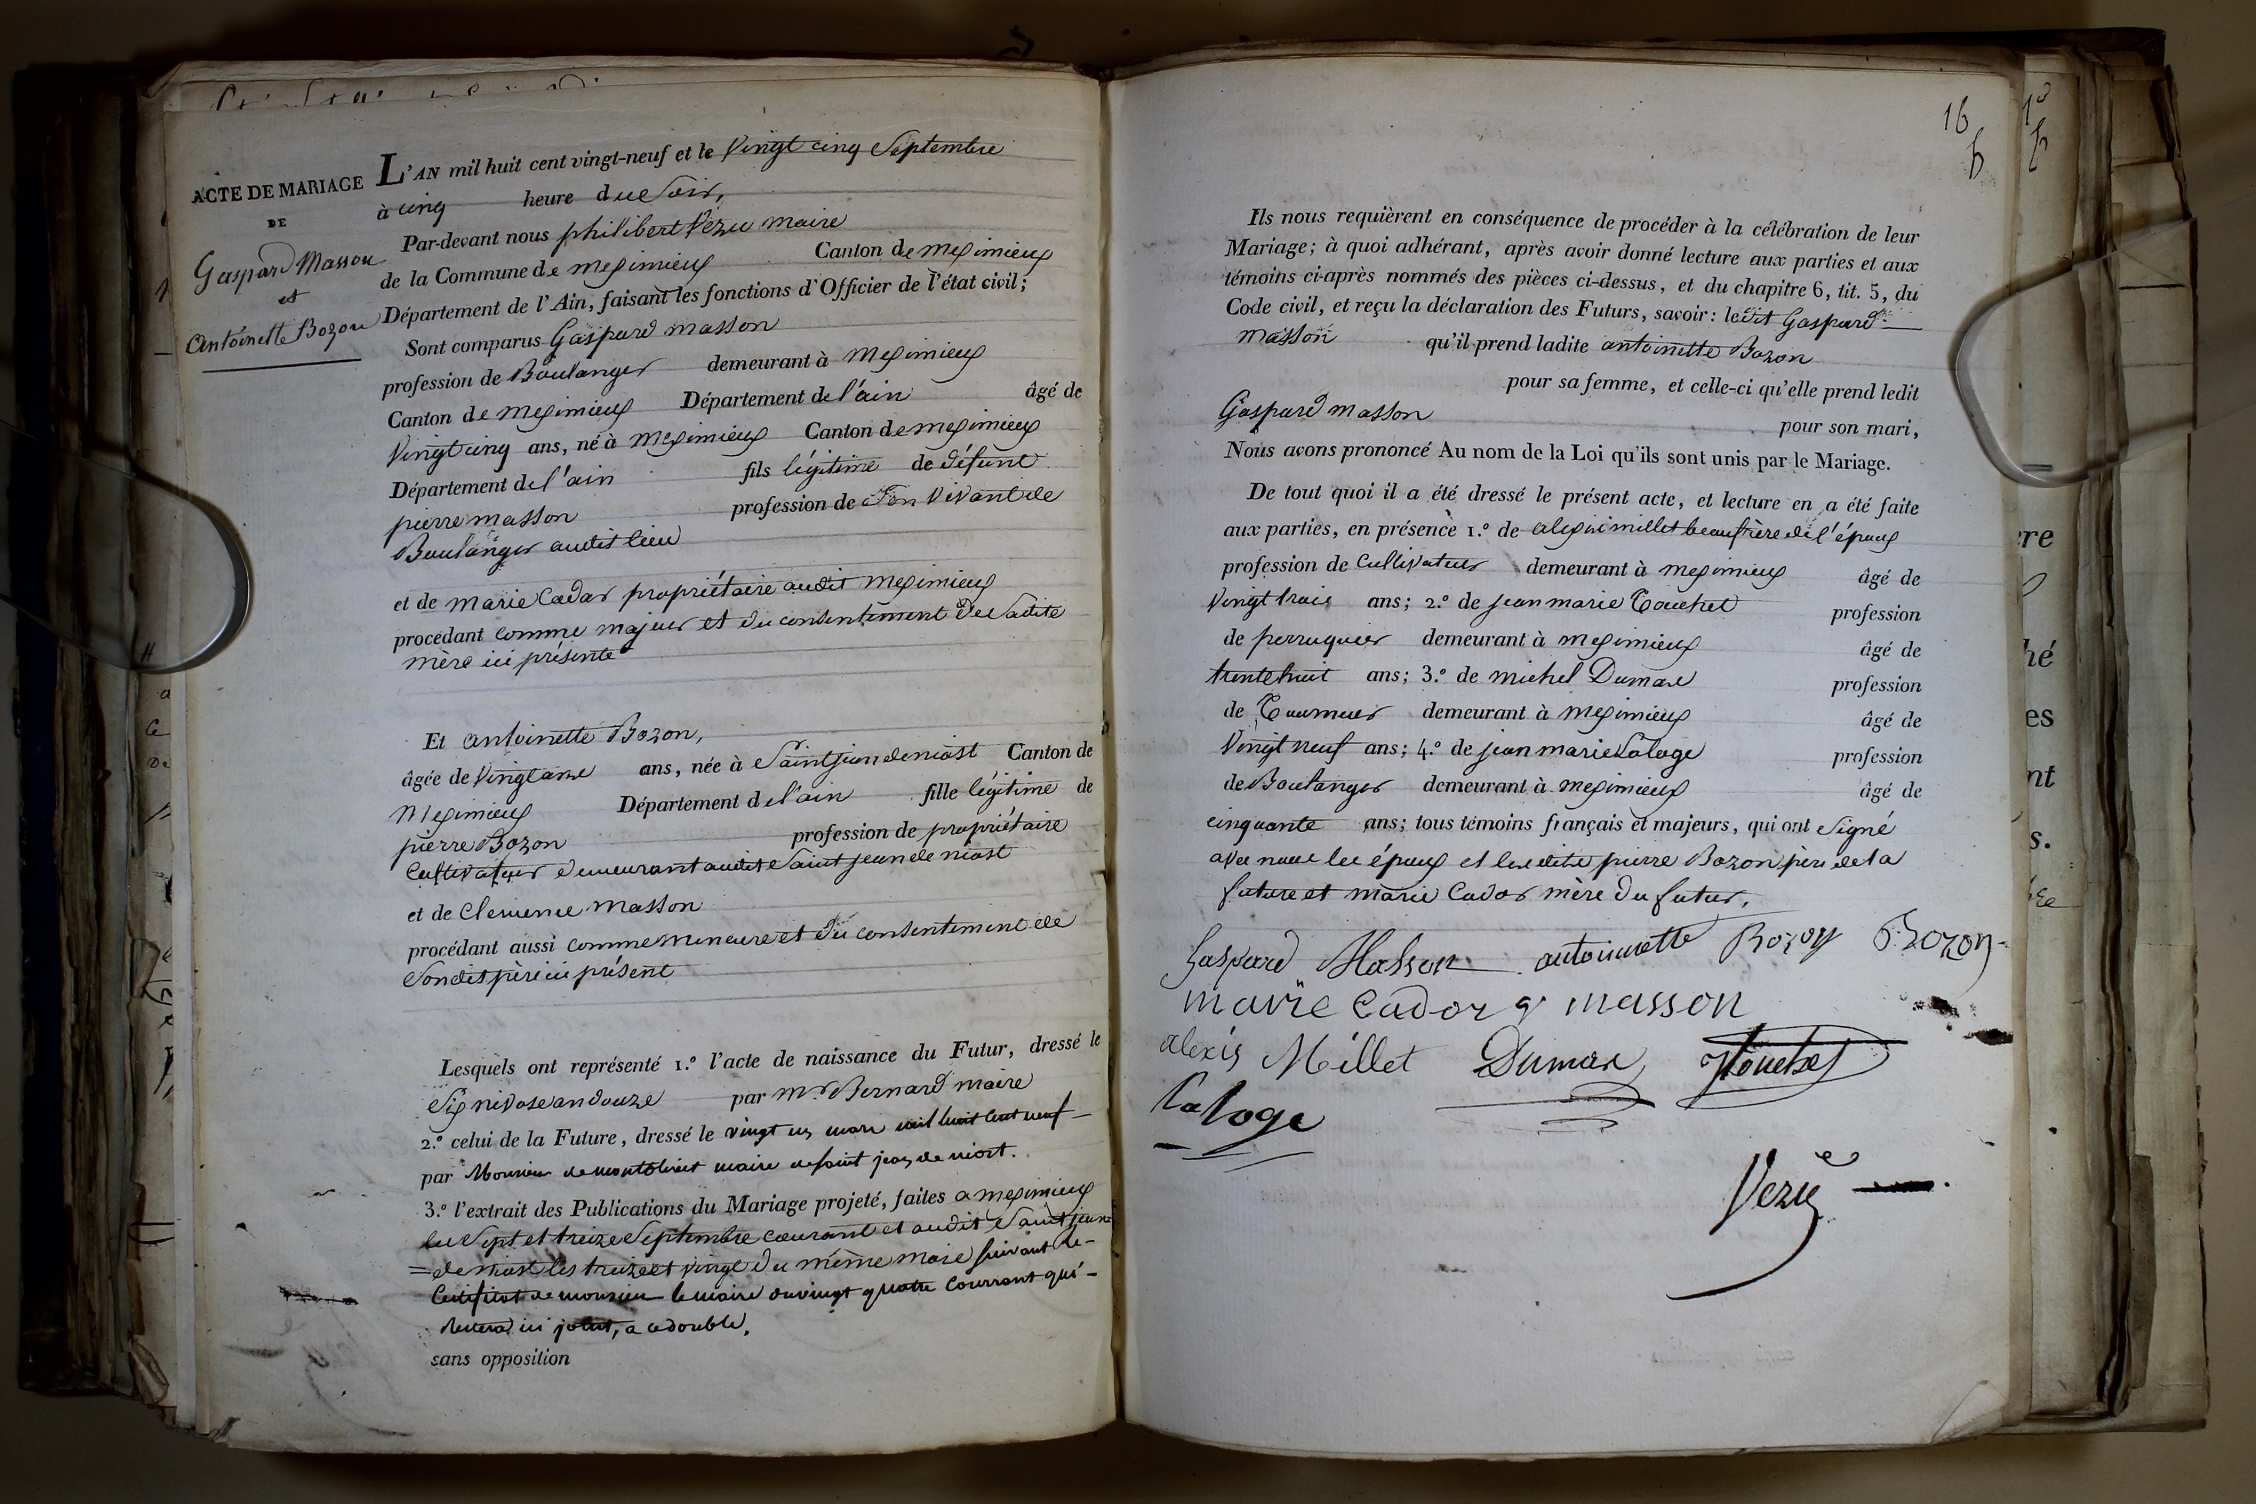 ACTE DE MARIAGE
DE
Gaspard Masson
et
antoinette Bozon
L'AN mil huit cent vingt-neuf et le Vingt cinq Septembre
à cinq heure du Soir,
Par-devant nous philibert Vezu maire
de la Commune de meximieux Canton de meximieux
Département de l'Ain, faisant les fonctions d'Officier de l'état civil;
Sont comparus Gaspard masson
profession de Boulanger demeurant à Meximieux
Canton de meximieux Département de l'ain âgé de
Vingt cinq ans, né à meximieux Canton de meximieux
Département de l'ain fils légitime de défunt
pierre masson profession de Son Vivant de
Boulanger audit lieu
et de marie Cador propriétaire audit meximieux
procédant comme majeur et du consentement de Sadite
mère ici présente
Et antoinette Bozon,
âgée de Vingt ans, née à Saint jean de niost Canton de
Meximieux Département de l'ain fille légitime de
pierre Bozon profession de propriétaire
Cultivateur demeurant audit Saint jean de niost
et de Clemence masson
procédant aussi comme mineure et du consentement de
Son dit père ici présent
Lesquels ont représenté 1.º l'acte de naissance du Futur, dressé le
Six nivose an douze par mr. Bernard maire
2.º celui de la Future, dressé le vingt un mars mil huit cent neuf
par Monsieur de maire de saint jean de niost.
3.º l'extrait des Publications du Mariage projeté, faites a meximieux
les Sept et treize Septembre courant et audit Saint jean
= de niost les treize et vingt du même mois suivant le-
Certificat de monsieur le maire du vingt quatre courrant qui-
restera ici joint, a ce double.
sans opposition
16
Ils nous requièrent en conséquence de procéder à la célébration de leur
Mariage; à quoi adhérant, après avoir donné lecture aux parties et aux
témoins ci-après nommés des pièces ci-dessus, et du chapitre 6, tit. 5, du
Code civil, et reçu la déclaration des Futurs, savoir: ledit Gaspard
masson qu'il prend ladite antoinette Bozon
pour sa femme, et celle-ci qu'elle prend ledit
Gaspard masson pour son mari,
Nous avons prononcé Au nom de la Loi qu'ils sont unis par le Mariage.
De tout quoi il a été dressé le présent acte, et lecture en a été faite
aux parties, en présence 1.º de alexis millet beaufrère de l'époux
profession de Cultivateur demeurant à meximieux âgé de
Vingt trois ans; 2.º de jean marie Touchet profession
de perruquier demeurant à meximieux âgé de
trente huit ans; 3.º de michel Dumas profession
de Tourneur demeurant à meximieux âgé de
Vingt neuf ans; 4.º de jean marie Laloge profession
de Boulanger demeurant à meximieux âgé de
cinquante ans; tous témoins français et majeurs, qui ont Signé
avec nous les époux et lesdits pierre Bozon père de la
future et marie Cador mère du futur.
Gaspard Masson antoinette Bozon Bozon
marie Cador masson
alexis Millet Dumas Touchet
Laloge
Vezu